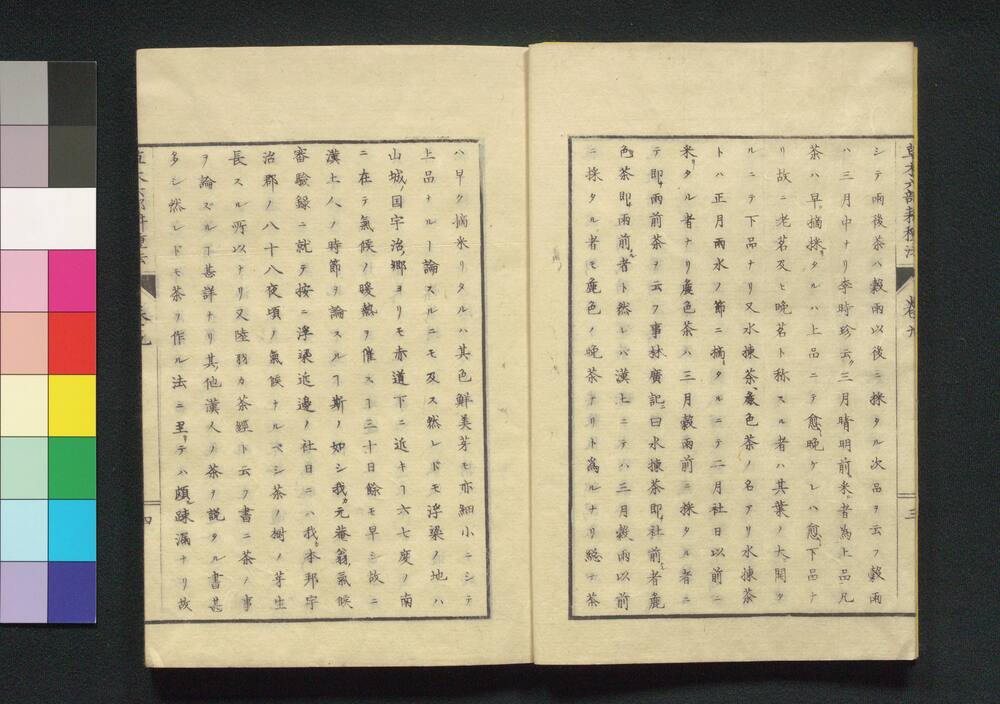 草木六部耕種法 巻九
三
シテ雨後茶ハ穀雨以後ニ採タル次品ヲ云フ穀雨
ハ三月中ナリ李時珍云三月晴明前采者為上品凡
茶ハ早ク摘採タルハ上品ニテ愈晩ケレハ愈下品ナ
リ故ニ老茗及ヒ晩茗ト称スル者ハ其葉ノ大開タ
ルニテ下品ナリ又水揀茶麁色茶ノ名アリ水揀茶
トハ正月雨水ノ節ニ摘タルニテ二月社日以前ニ
釆リタル者ナリ麁色茶ハ三月穀雨前ニ採タル者ニ
テ即雨前茶ヲ云フ事林廣記ニ曰水揀茶即社前者麁
色茶即雨前者ト然レバ漢土ニテハ三月穀雨以前
ニ採タル者モ麁色ノ晩茶ナリト為ルナリ総テ茶
ハ早ク摘釆リタルハ其色鮮美芽モ亦細小ニシテ
上品ナルヿ論スルニモ及ス然レドモ浮梁ノ地ハ
山城ノ国宇治郷ヨリモ赤道下ニ近キヿ六七度ノ南
ニ在テ氣候ノ暖熱ヲ催スヿ三十日餘モ早シ故ニ
漢土人ノ時節ヲ論スルヿ斯ノ如シ我カ元菴翁氣候
審驗録ニ就テ按ニ浮梁近邊ノ社日ニハ我本邦宇
治郡ノ八十八夜頃ノ氣候ナルベシ茶ノ樹ノ芽生
長スル所以ナリ又陸羽カ茶經ト云フ書ニ茶ノ事
ヲ論ズルヿ甚詳ナリ其他漢人ノ茶ヲ説タル書甚
多シ然レドモ茶ヲ作ル法ニ至テハ頗疎漏ナリ故
四